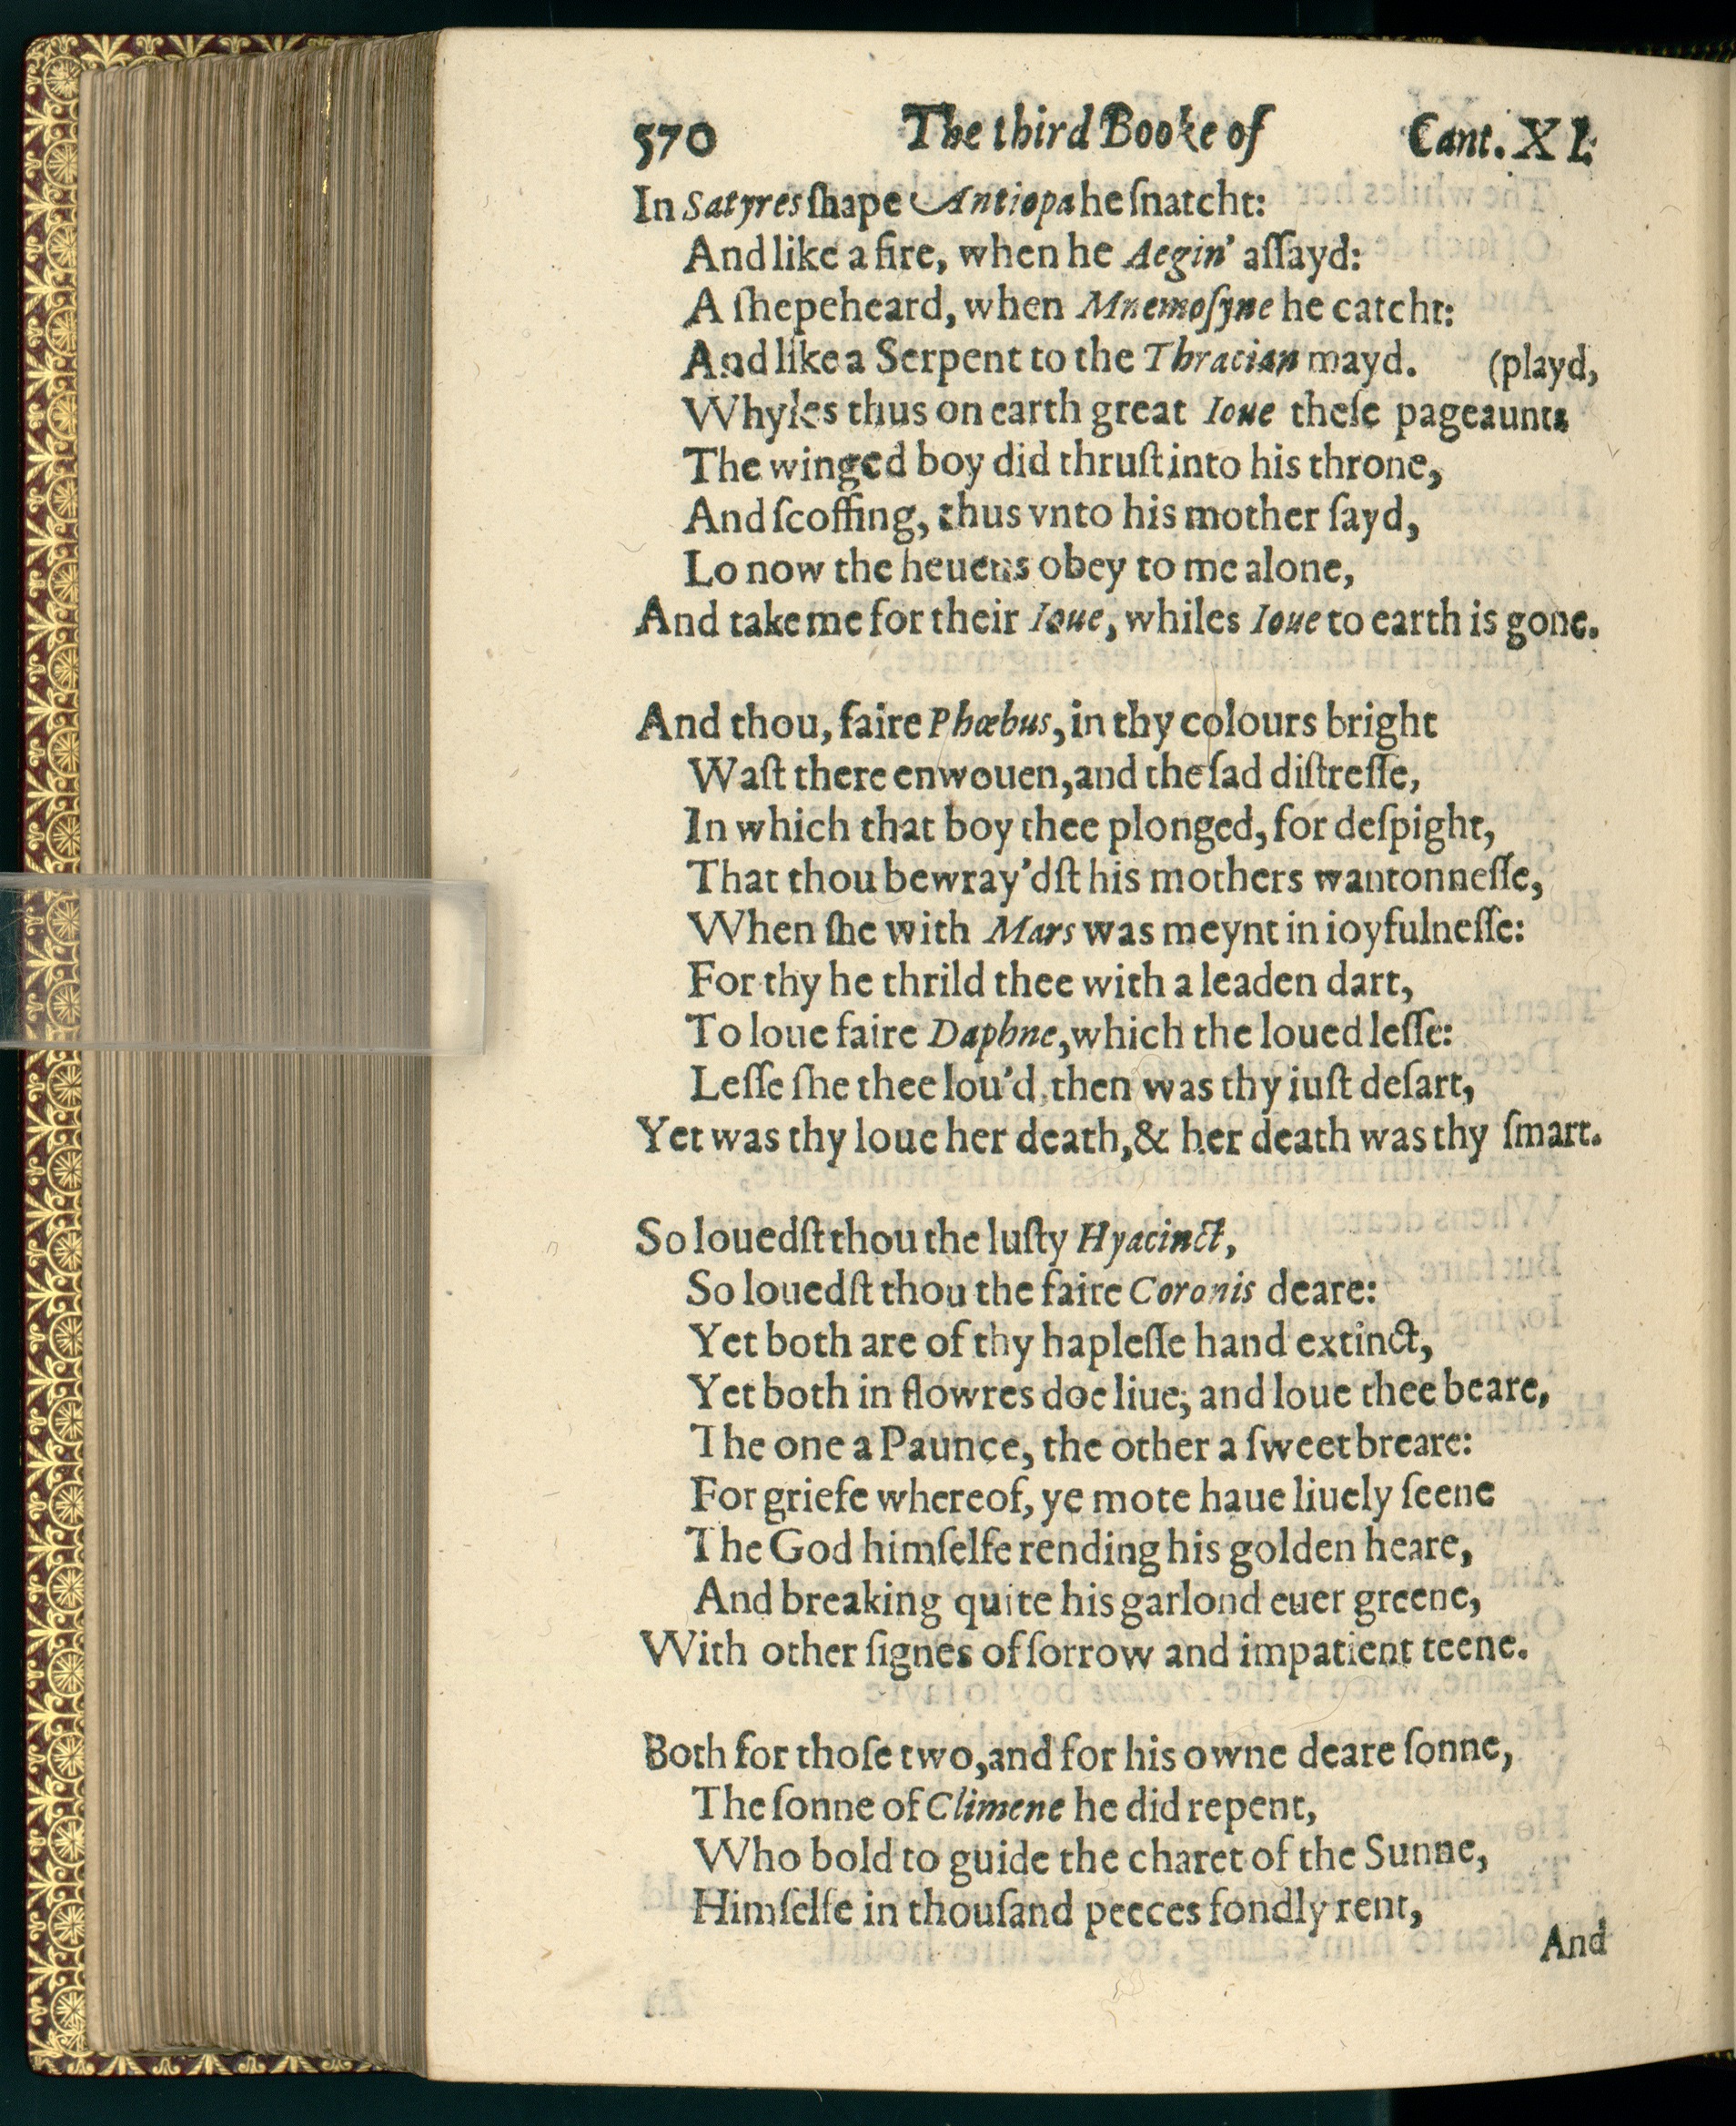 570 The third Booke of Cant. XI.
In Satyres ſhape Antiopa he ſnatcht:
And like a fire, when he Aegin' aſſayd:
A ſhepeheard, when Mnemoſyne he catcht:
And like a Serpent to the Thracian mayd. (playd,
Whyles thus on earth great Ioue theſe pageaunts
The winged boy did thruſt into his throne,
And ſcoffing, thus vnto his mother ſayd,
Lo now the heuens obey to me alone,
And take me for their Ioue, whiles Ioue to earth is gone.
And thou, faire Phœbus, in thy colours bright
Waſt there enwouen, and the ſad diſtreſſe,
In which that boy thee plonged, for deſpight,
That thou bewray'dſt his mothers wantonneſſe,
When ſhe with Mars was meynt in ioyfulneſſe:
For thy he thrild thee with a leaden dart,
To loue faire Daphne, which the loued leſſe:
Leſſe ſhe thee lou'd, then was thy iuſt deſart,
Yet was thy loue her death, & her death was thy ſmart.
So louedſt thou the luſty Hyacinct,
So louedſt thou the faire Coronis deare:
Yet both are of thy hapleſſe hand extinct,
Yet both in flowres doe liue, and loue thee beare,
The one a Paunce, the other a ſweet breare:
For griefe whereof, ye mote haue liuely ſeene
The God himſelfe rending his golden heare,
And breaking quite his garlond euer greene,
With other ſignes of ſorrow and impatient teene.
Both for thoſe two, and for his owne deare ſonne,
The ſonne of Climene he did repent,
Who bold to guide the charet of the Sunne,
Himſelfe in thouſand peeces fondly rent,
And